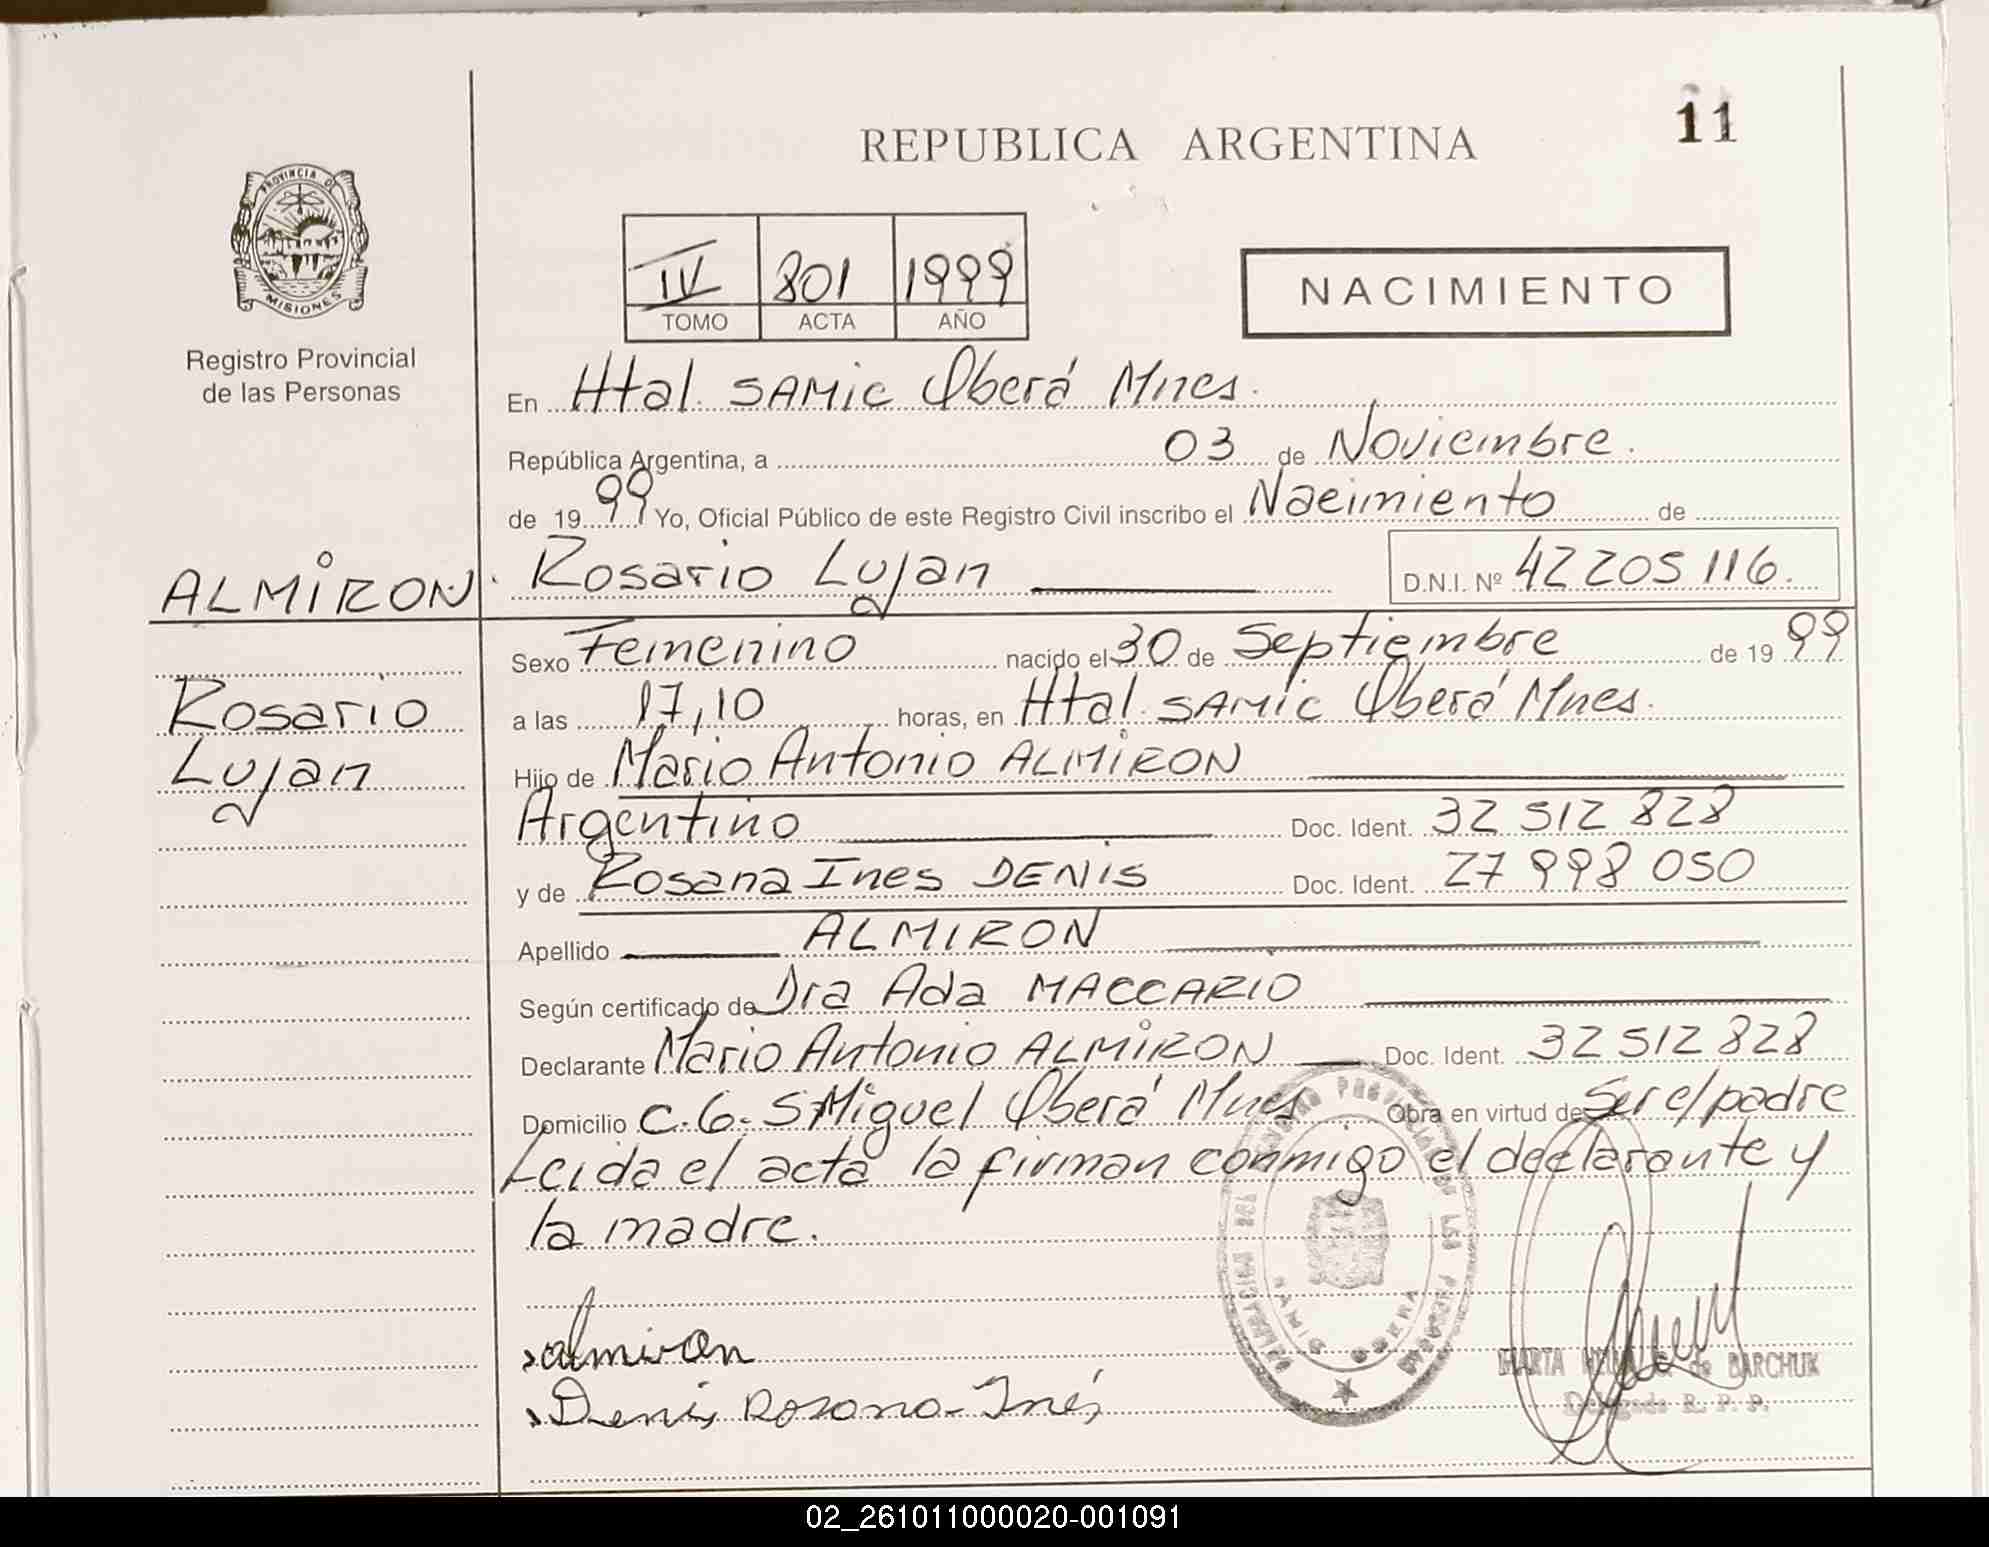 11
REPUBLICA ARGENTINA
PROVINCIA DE
MISIONES
Registro Provincial
de las Personas
IV 801 1999
TOMO ACTA AÑO
NACIMIENTO
En Htal. SAMic Oberá Mnes.
República Argentina, a 03 de Noviembre.
de 1999 Yo, Oficial Público de este Registro Civil inscribo el Nacimiento de
ALMIRON. Rosario Lujan D.N.I. Nº 42 205 116.
Sexo Femenino nacido el 30 de Septiembre de 1999
Rosario
a las 17,10 horas, en Htal. SAMic Oberá Mnes.
Lujan
Hijo de Mario Antonio ALMIRON
Argentino Doc. Ident. 32 512 828
y de Rosana Ines DENIS Doc. Ident. 27 998 050
Apellido ALMIRON
Según certificado de Dra Ada MACCARIO
Declarante Mario Antonio ALMIRON Doc. Ident. 32 512 828
Domicilio C.G. S Miguel Oberá Mnes Obra en virtud de Ser el padre
Leida el acta la firman conmigo el declarante y
la madre.
almiron
Denis Rosana Inés
MARTA de BARCHUK
Delegada R. P. P.
02_261011000020-001091